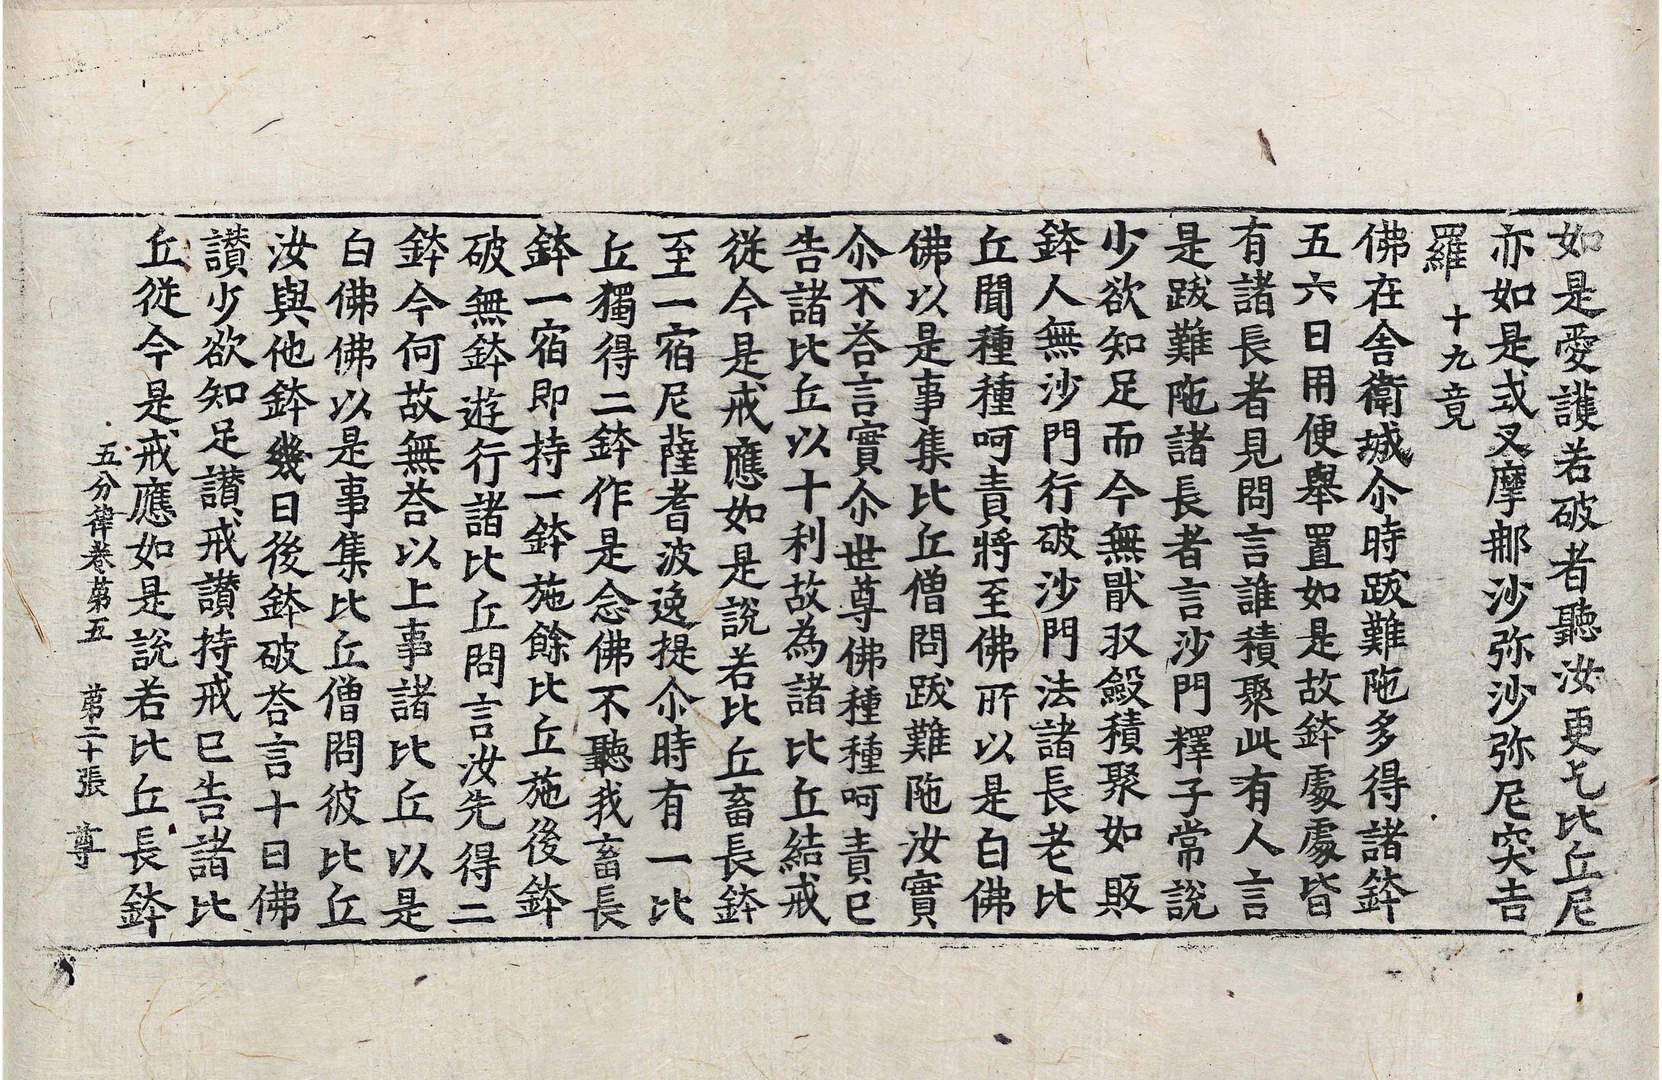 如是愛護若破者聽汝更乞比丘尼
亦如是式叉摩那沙弥沙弥尼突吉
羅 十九竟
佛在舍衛城尒時跋難陁多得諸鉢
五六日用便舉置如是故鉢處處皆
有諸長者見問言誰積聚此有人言
是跋難陁諸長者言沙門釋子常說
少欲知足而今無猒収斂積聚如販
鉢人無沙門行破沙門法諸長老比
丘聞種種呵責將至佛所以是白佛
佛以是事集比丘僧問跋難陁汝實
尒不荅言實尒世尊佛種種呵責已
告諸比丘以十利故為諸比丘結戒
從今是戒應如是說若比丘畜長鉢
至一宿尼薩耆波逸提尒時有一比
丘獨得二鉢作是念佛不聽我畜長
鉢一宿即持一鉢施餘比丘施後鉢
破無鉢遊行諸比丘問言汝先得二
鉢今何故無荅以上事諸比丘以是
白佛佛以是事集比丘僧問彼比丘
汝與他鉢幾日後鉢破荅言十日佛
讃少欲知足讃戒讃持戒已告諸比
丘從今是戒應如是說若比丘長鉢
五分律卷第五 第二十張 尊